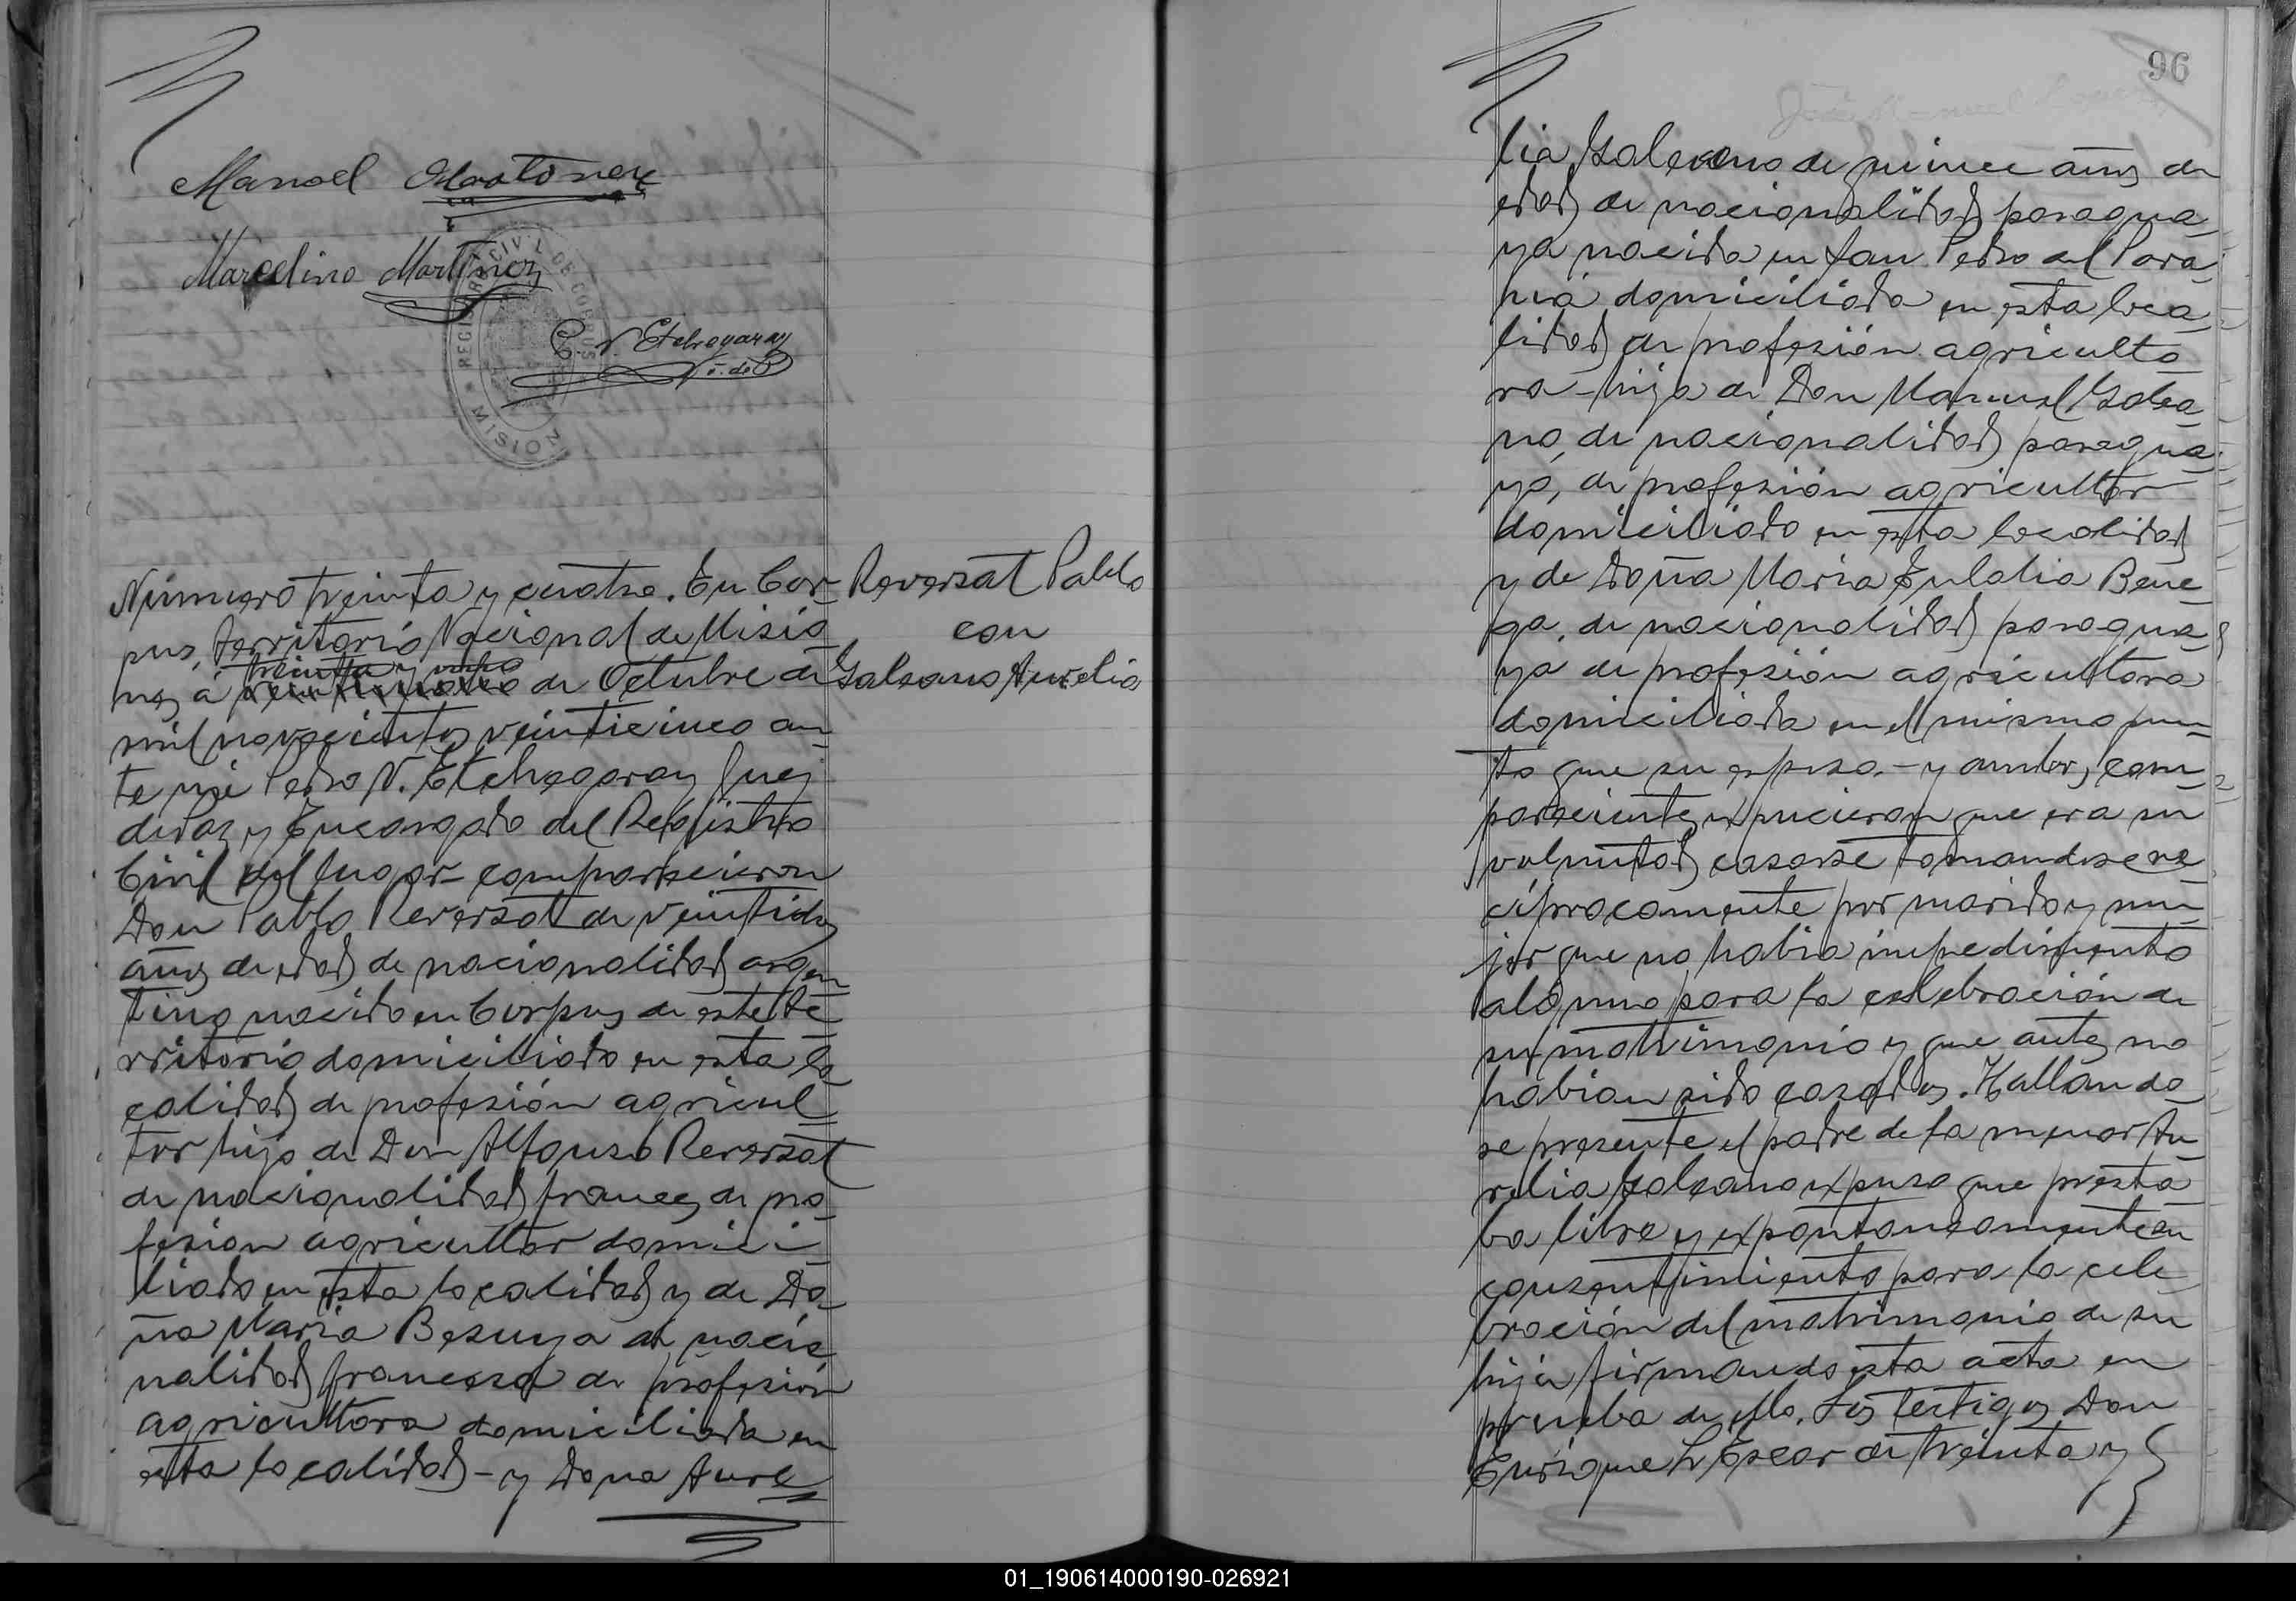 Manoel
Marcelino Martinez
P. N. Etchegaray
J. de P.
REGISTRO CIVIL DE CORPUS
MISIONES
Número treinta y cuatro. En Cor-
pus, territorio Nacional de Misio
nes á treinta y uno
de Octubre de
mil novecientos veinticinco an
te mi Pedro N. Etchegaray Juez
de Paz y Encargado del Registro
Civil del lugar - comparecieron
Don Pablo Reversat de veintidos
años de edad de nacionalidad argen
tino nacido en Corpus de este te
rritorio domiciliado en esta lo
calidad de profesión agricul
tor hijo de Don Alfonso Reversat
de nacionalidad frances de pro
fesion agricultor domici
liado en esta localidad y de Do
ña Maria Besuya de nacio
nalidad francesa de profesión
agricultora domiciliada en
esta localidad - y Dona Aure
Reversat Pablo
con
Galeano Aurelia
96
lia Galeano de quince años de
edad de nacionalidad paragua
ya nacida en San Pedro del Para
ná domiciliada en esta loca
lidad de profesión agriculto
ra - hija de Don Manuel Galea
no, de nacionalidad paragua
yo, de profesión agricultor
domiciliado en esta localidad
y de Doña Maria Eulalia Bene
ga, de nacionalidad paragua
ya de profesión agricultora
domiciliada en el mismo pun
to que su esposo. - y ambos com
parecientes expucieron que era su
voluntad casarse tomandose re
ciprocamente por marido y mu
jer que no habia impedimento
alguno para la celebración de
su matrimonio y que antes no
habian sido casados. Hallando
se presente el padre de la menor Au
relia Galeano expuso que presta
ba libre y expontaneamente su
consentimiento para la cele
bración del matrimonio de su
hija firmando esta acta en
prueba de ello. Los testigos Don
Enrique L. Escar de treinta y
01_190614000190-026921